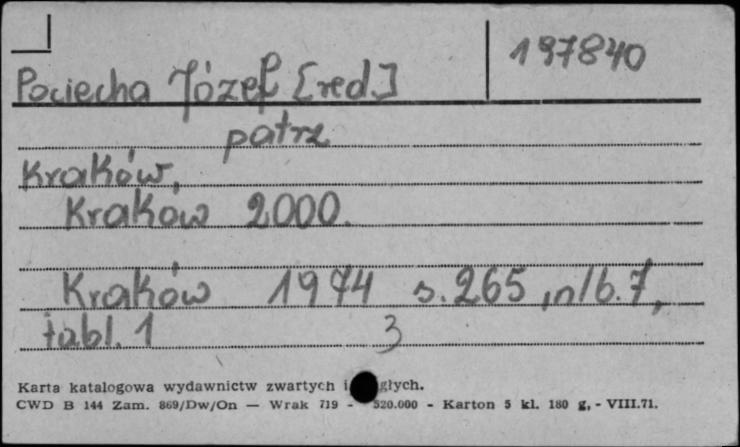 197840
Pociecha Józef [red.]
patrz
Kraków,
Krakow 2000.
Kraków 1974 s. 265, nlb. 7,
tabl. 1 3
Karta katalogowa wydawnictw zwartych i głych.
CWD B 144 Zam. 869/Dw/On — Wrak 719 - 520.000 - Karton 5 kl. 180 g, - VIII.71.